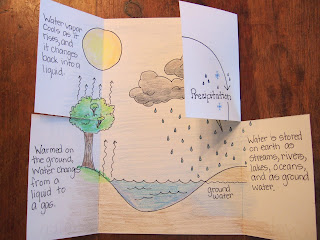 Water vapor
cools as it
rises, and
it changes
back into a
liquid.
Precipitation
Warmed on
the ground,
water changes
from a
liquid to
a gas.
ground
water
Water is stored
on earth as
streams, rivers,
lakes, oceans,
and as ground
water.